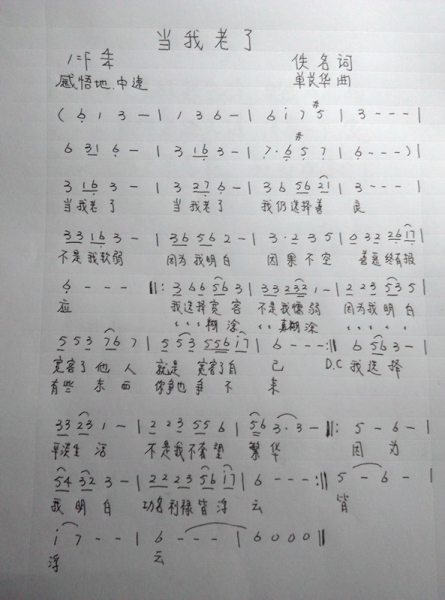 当我老了
1=F 4/4 佚名词
感悟地.中速 单岗华曲
( 6 1 3 - | 1 3 6 - | 6 i 7 #5 | 3 - - - |
6 31 6 - | 3 163 - | 7 · 6 #5 7 | 6 - - - )
3 16 3 - | 3 27 6 - | 3 6 56 21 | 3 - - - |
当我老了 当我老了 我仍选择善 良
33 16 3 - | 36 56 2 - | 3 · 2 3 5 | 03 22 6 17 |
不是我软弱 因为我明白 因果不空 善恶终有报
6 - - - ||: 36 6 56 3 | 33 232 1 - | 2 23 53 5 |
应 我选择宽容 不是我懦弱 因为我明白
糊涂 真糊涂
55 53 76 7 | 55 3 556 17 | 6 - - :|| 6 56 3 - |
宽容了他人 就是宽容了自 己 D.C 我选择
有些东西 你争也争不 来
33 23 1 - | 2 23 55 6 | 56 3 · 3 - ||: 5 - 6 - |
平淡生活 不是我不希望 繁华 因为
54 32 3 - | 22 23 56 i7 | 6 - - - :|| 5 - 6 - |
我明白 功名利禄皆浮 云 皆
i 7 - - | 6 - - - | 6 0 0 0 ||
浮 云